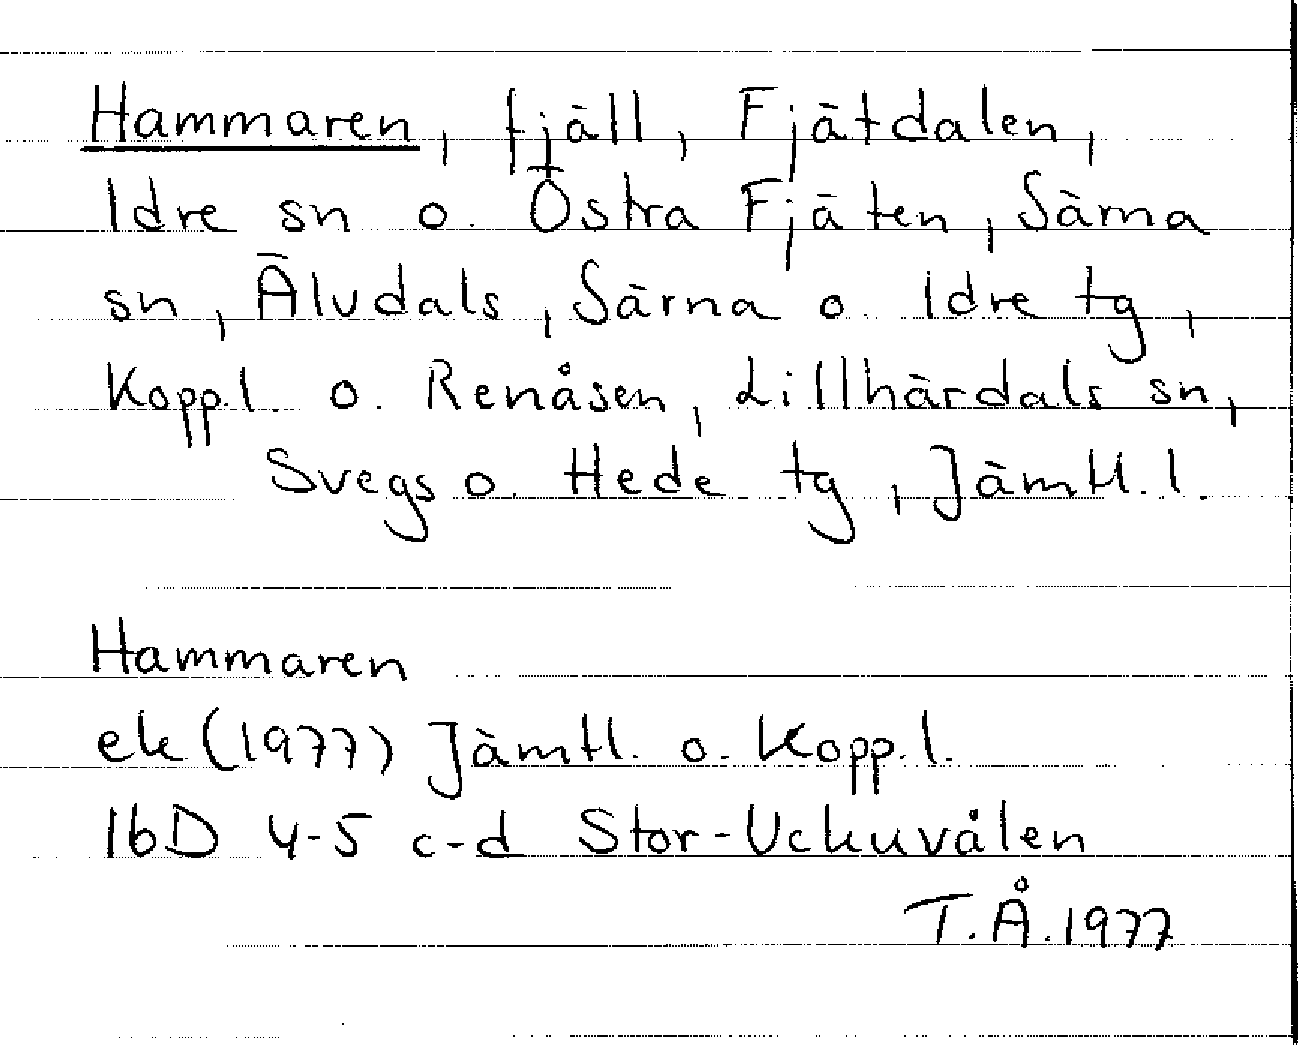 Hammaren, fjäll, Fjätdalen,
Idre sn o. Östra Fjäten, Särna
sn, Älvdals, Särna o. Idre tg,
Kopp.l. o. Renåsen, Lillhärdals sn,
Svegs o. Hede tg, Jämtl.l.
Hammaren
ek (1977) Jämtl. o. Kopp.l.
16D 4-5 c-d Stor-Uckuvålen
T.Å.1977